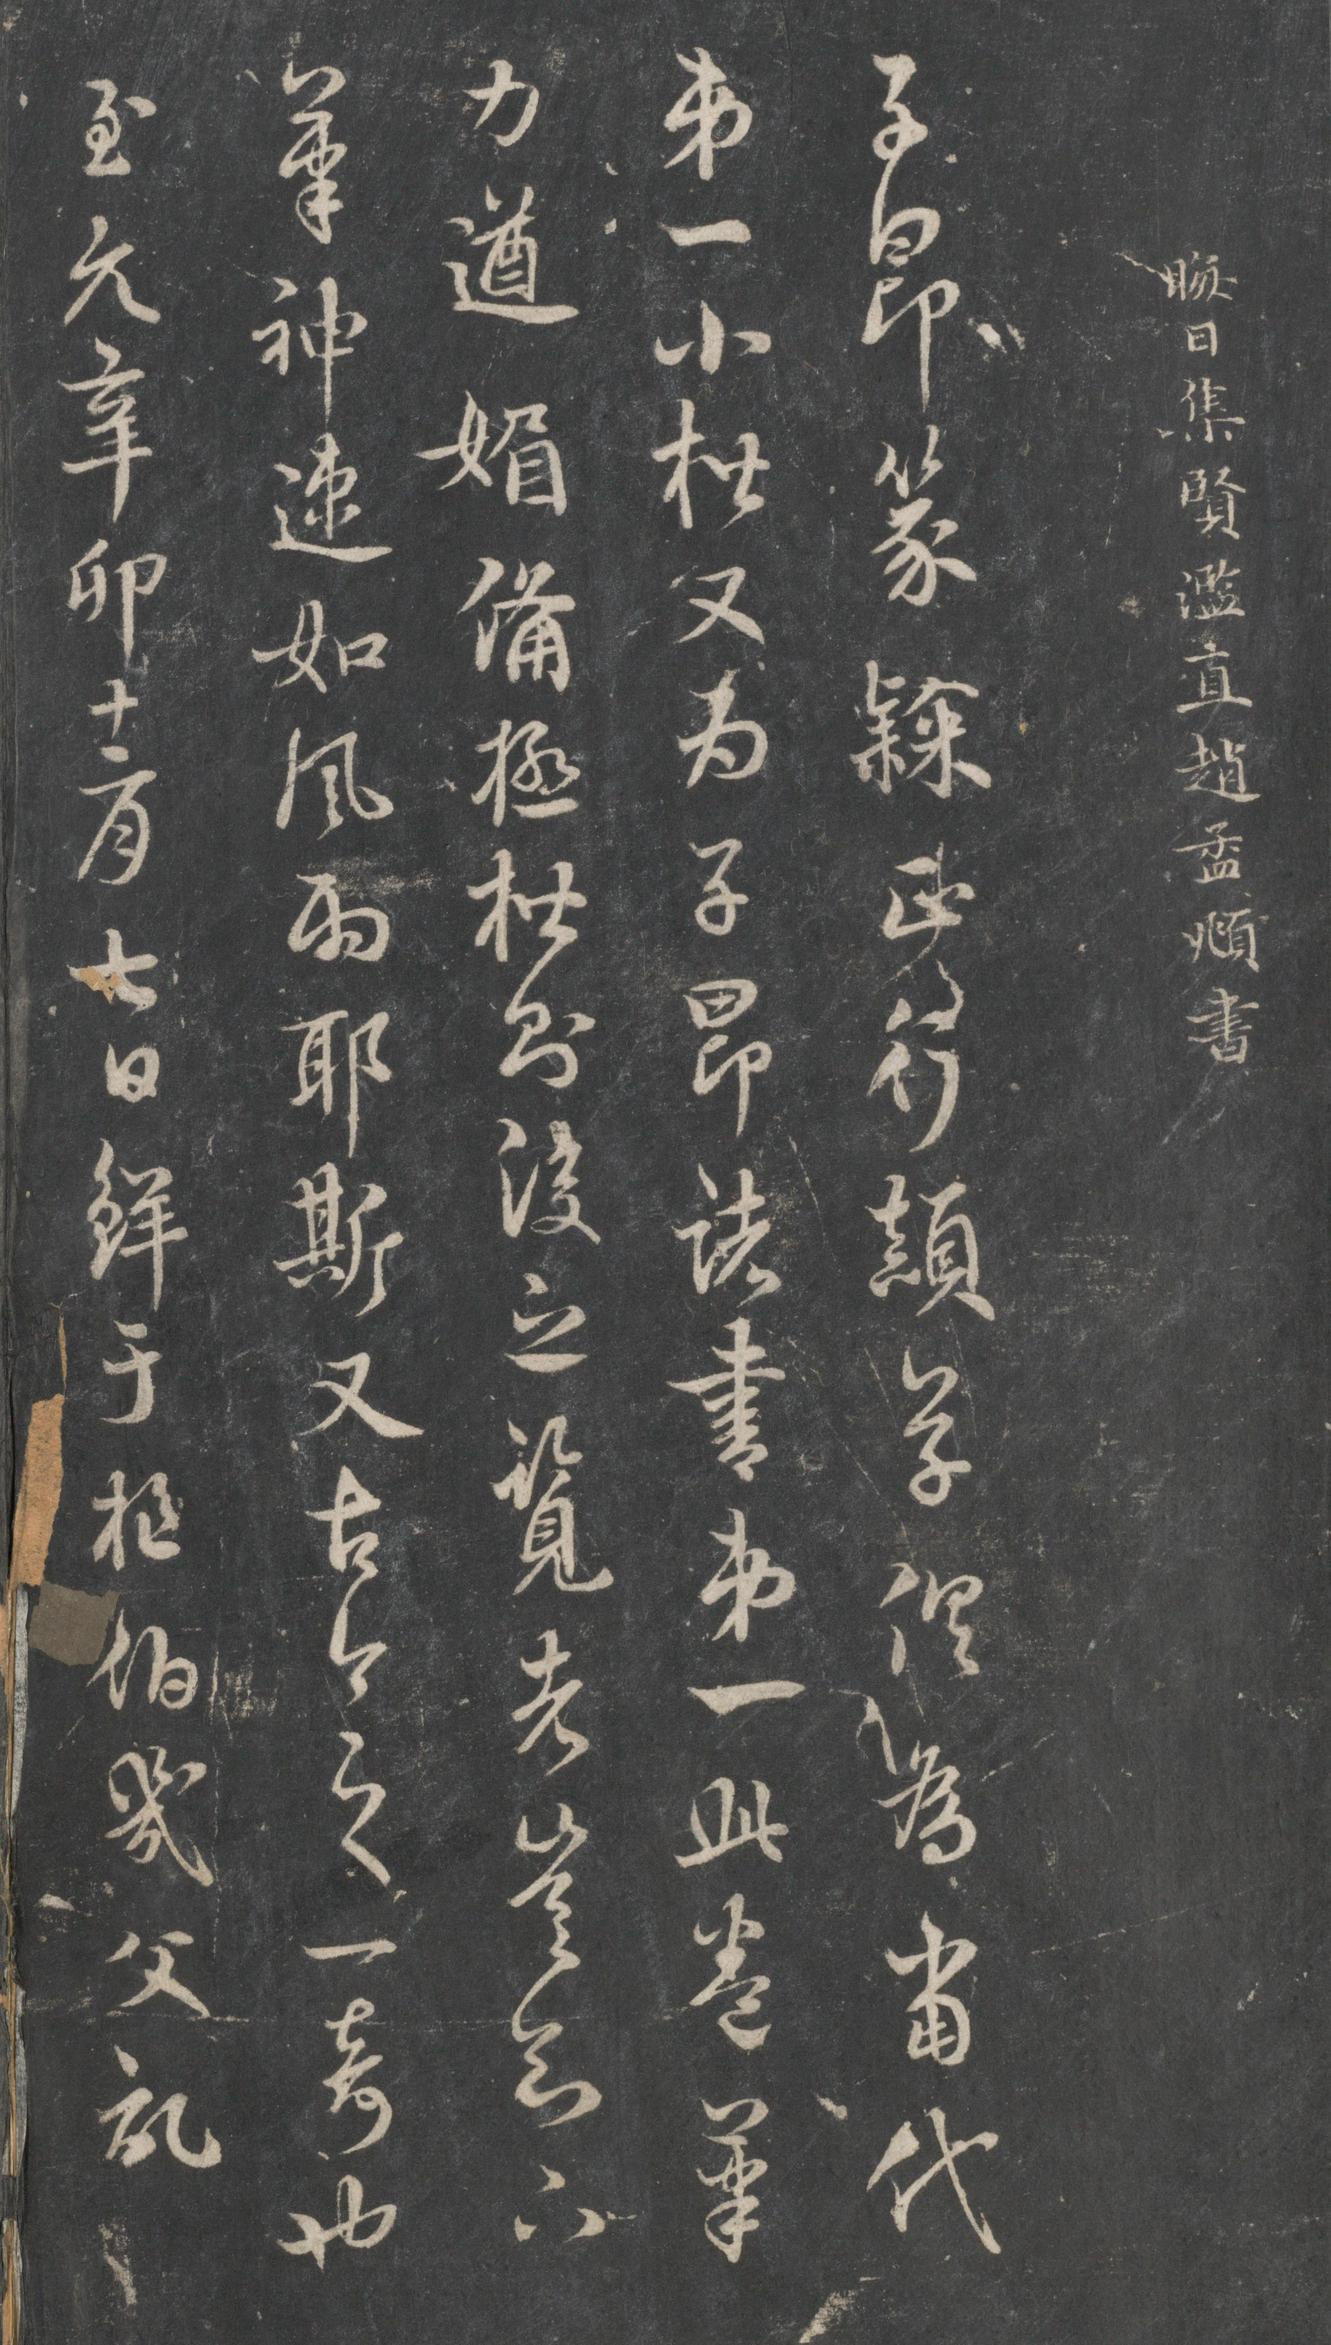 晦日集賢濫直趙孟頫書
子昂篆隸正行顛草俱為當代
第一小楷又为子昂諸書第一此卷筆
力遒媚備極楷則後之覽者豈知下
筆神速如風雨耶斯又古今之一奇也
至元辛卯十二月七日鮮于樞伯幾父記